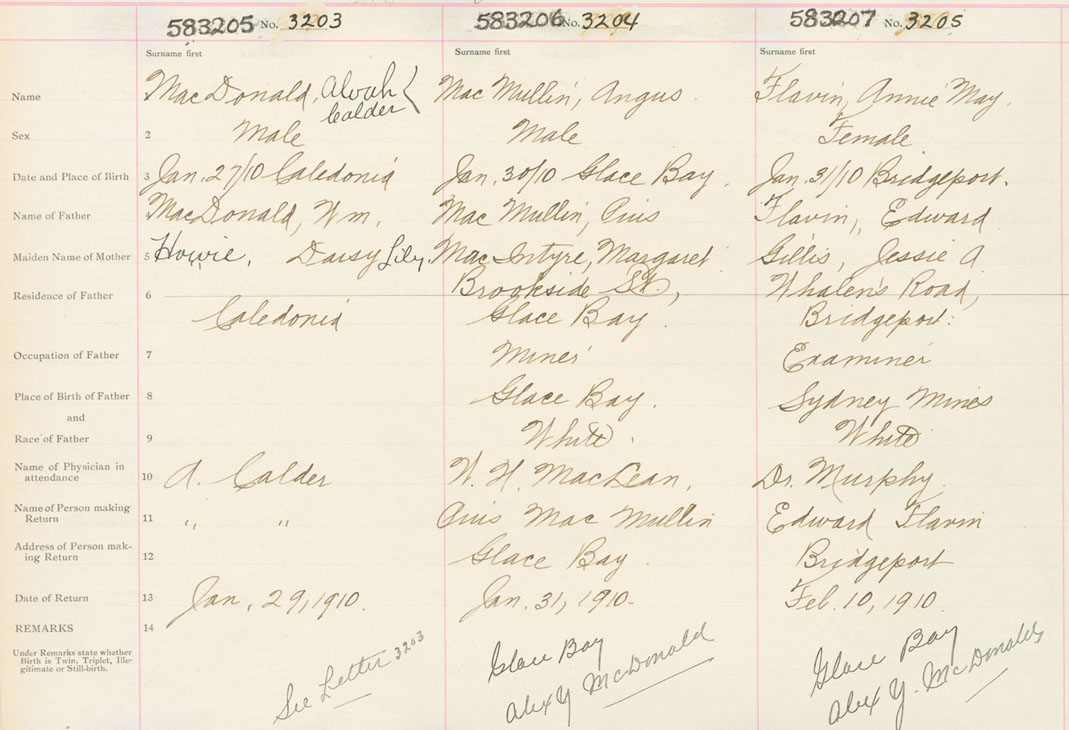 583205 No. 3203 583206 No. 3204 583207 No. 3205
Surname first Surname first Surname first
Name MacDonald, Alvah Calder Mac Mullin, Angus Flavin, Annie May.
Sex 2 Male Male Female
Date and Place of Birth 3 Jan. 27/10 Caledonia Jan. 30/10 Glace Bay. Jan. 31/10 Bridgeport.
Name of Father MacDonald, Wm. Mac Mullin, Pius Flavin, Edward
Maiden Name of Mother 5 Howie, Daisy Lily. MacIntyre, Margaret Gillis, Jessie A
Residence of Father 6 Brookside St., Whalen's Road,
Caledonia Glace Bay Bridgeport.
Occupation of Father 7 Miner Examiner
Place of Birth of Father 8 Glace Bay. Sydney Mines
and
Race of Father 9 White. White
Name of Physician in
attendance 10 A. Calder W. H. MacLean, Dr. Murphy.
Name of Person making
Return 11 " " Pius Mac Mullin Edward Flavin
Address of Person mak-
ing Return 12 Glace Bay Bridgeport
Date of Return 13 Jan, 29, 1910. Jan. 31, 1910. Feb. 10, 1910.
REMARKS 14
Under Remarks state whether
Birth is Twin, Triplet, Ille-
gitimate or Still-birth.
See Letter 3203
Glace Bay
Alex Y McDonald
Glace Bay
Alex Y. McDonald